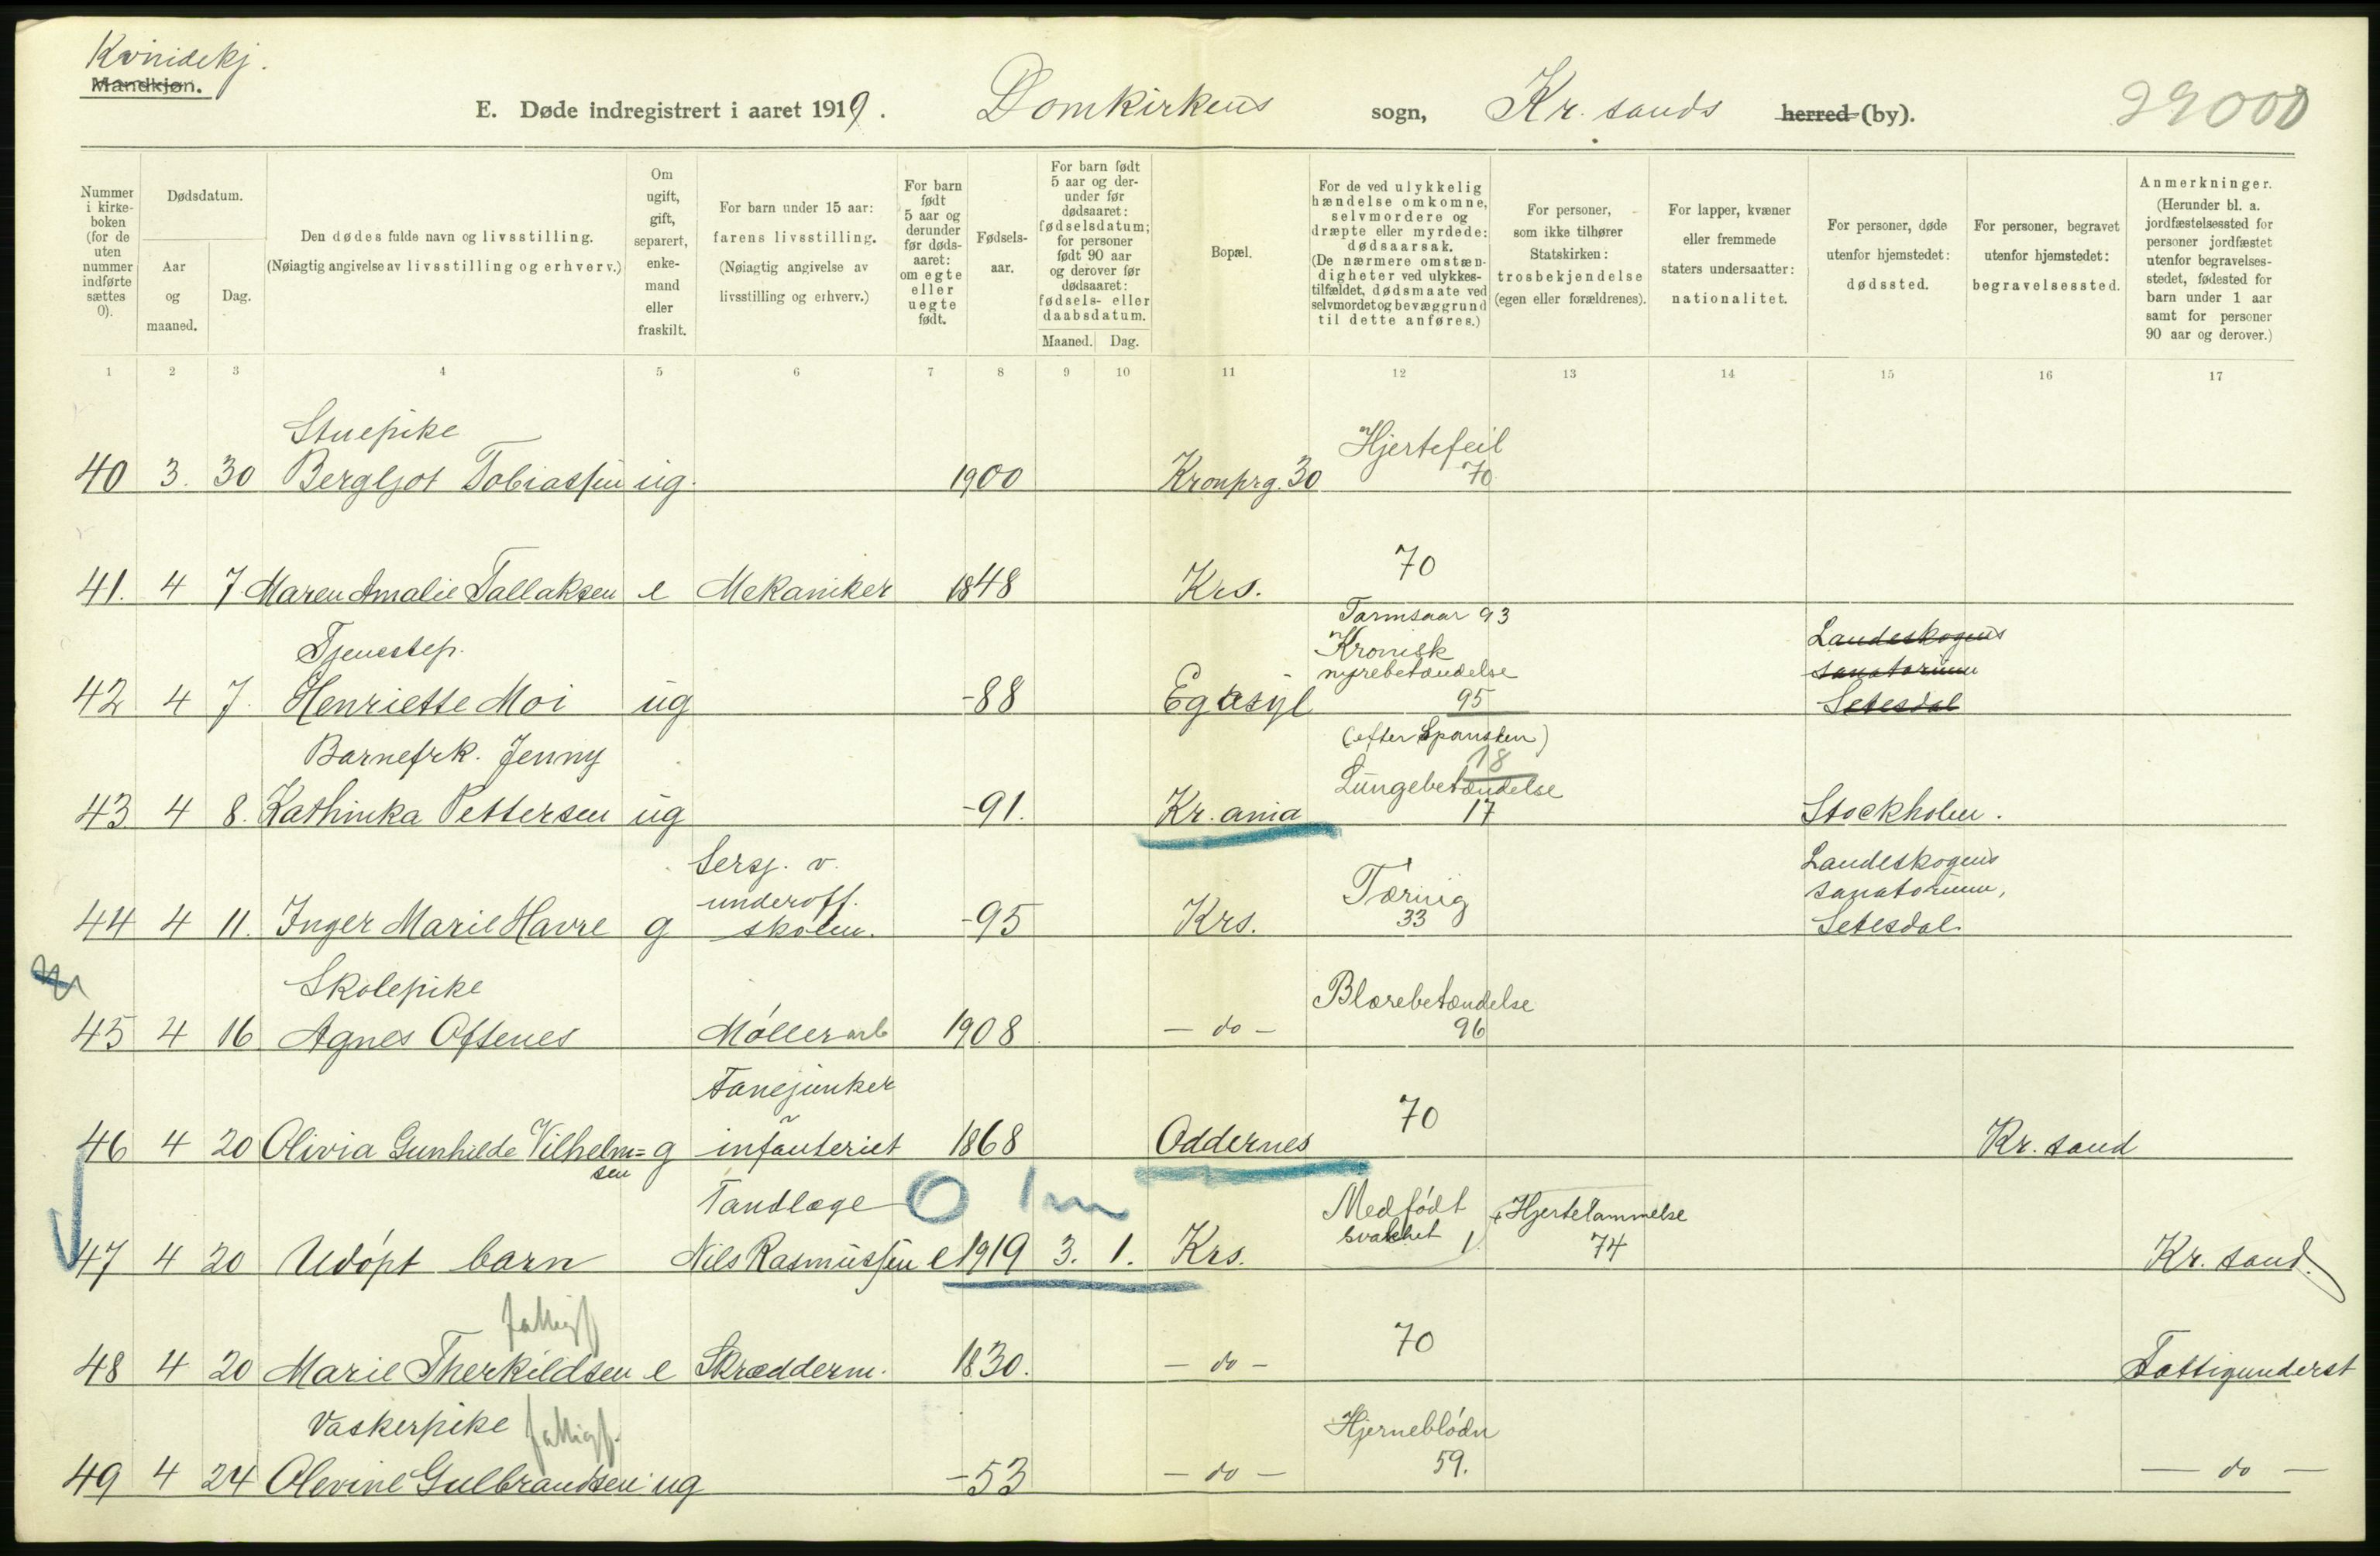 Kvindekj.
Mandkjøn.
E. Døde indregistrert i aaret 1919. Domkirkens sogn, Kr. sands herred (by).
Nummer i kirke-boken (for de uten nummer indførte sættes 0).
Dødsdatum.
Aar og maaned.
Dag.
Den dødes fulde navn og livsstilling.
(Nøiagtig angivelse av livsstilling og erhverv.)
Om ugift, gift, separert, enke-mand eller fraskilt.
For barn under 15 aar: farens livsstilling.
(Nøiagtig angivelse av livsstilling og erhverv.)
For barn født 5 aar og derunder før døds-aaret: om egte eller uegte født.
Fødsels-aar.
For barn født 5 aar og der-under før dødsaaret: fødselsdatum; for personer født 90 aar og derover før dødsaaret: fødsels- eller daabsdatum.
Maaned. Dag.
Bopæl.
For de ved ulykkelig hændelse omkomne, selvmordere og dræpte eller myrdede: dødsaarsak.
(De nærmere omstæn-digheter ved ulykkes-tilfældet, dødsmaate ved selvmordet og bevæggrund til dette anføres.)
For personer, som ikke tilhører Statskirken: trosbekjendelse (egen eller forældrenes).
For lapper, kvæner eller fremmede staters undersaatter: nationalitet.
For personer, døde utenfor hjemstedet: dødssted.
For personer, begravet utenfor hjemstedet: begravelsessted.
Anmerkninger.
(Herunder bl. a. jordfæstelsessted for personer jordfæstet utenfor begravelses-stedet, fødested for barn under 1 aar samt for personer 90 aar og derover.)
1 2 3 4 5 6 7 8 9 10 11 12 13 14 15 16 17
Stuepike Hjertefeil
40 3. 30 Bergljot Tobiassen ug. 1900 Kronprg. 30 70
70
41. 4 7. Maren Amalie Tallaksen e Mekaniker 1848 Krs.
Tarmsaar 93
Tjenestep. Kronisk Landeskogens
nyrebetændelse sanatorium
42 4 7. Henriette Moi ug -88 Eg asyl 95 Setesdal
Barnefrk. Jenny (efter Spansken)
18
Lungebetændelse
43 4 8. Kathinka Pettersen ug -91. Kr.ania 17 Stockholm.
Sersj. v. Landeskogens
underoff. Tæring sanatorium,
44 4 11. Inger Marie Havre g skolen. -95 Krs. 33 Setesdal.
Skolepike Blærebetændelse
45 4 16 Agnes Oftenes Møllerarb 1908 - do - 96
Fanejunker 70
46 4 20 Olivia Gunhilde Vilhelm=sen g infanteriet 1868 Oddernes Kr. sand
Tandlæge 0 1 m Medfødt + Hjertelammelse
svakhet 1. 74
47 4 20 Udøpt barn Nils Rasmussen e 1919 3. 1. Krs. Kr. sand.
fattigf 70
48 4 20 Marie Therkildsen e Skrædderm. 1830. - do - Fattigunderst
Vaskerpike fattigf. Hjerneblødn
49 4 24 Olevine Gulbrandsen ug -53 - do - 59. - do -